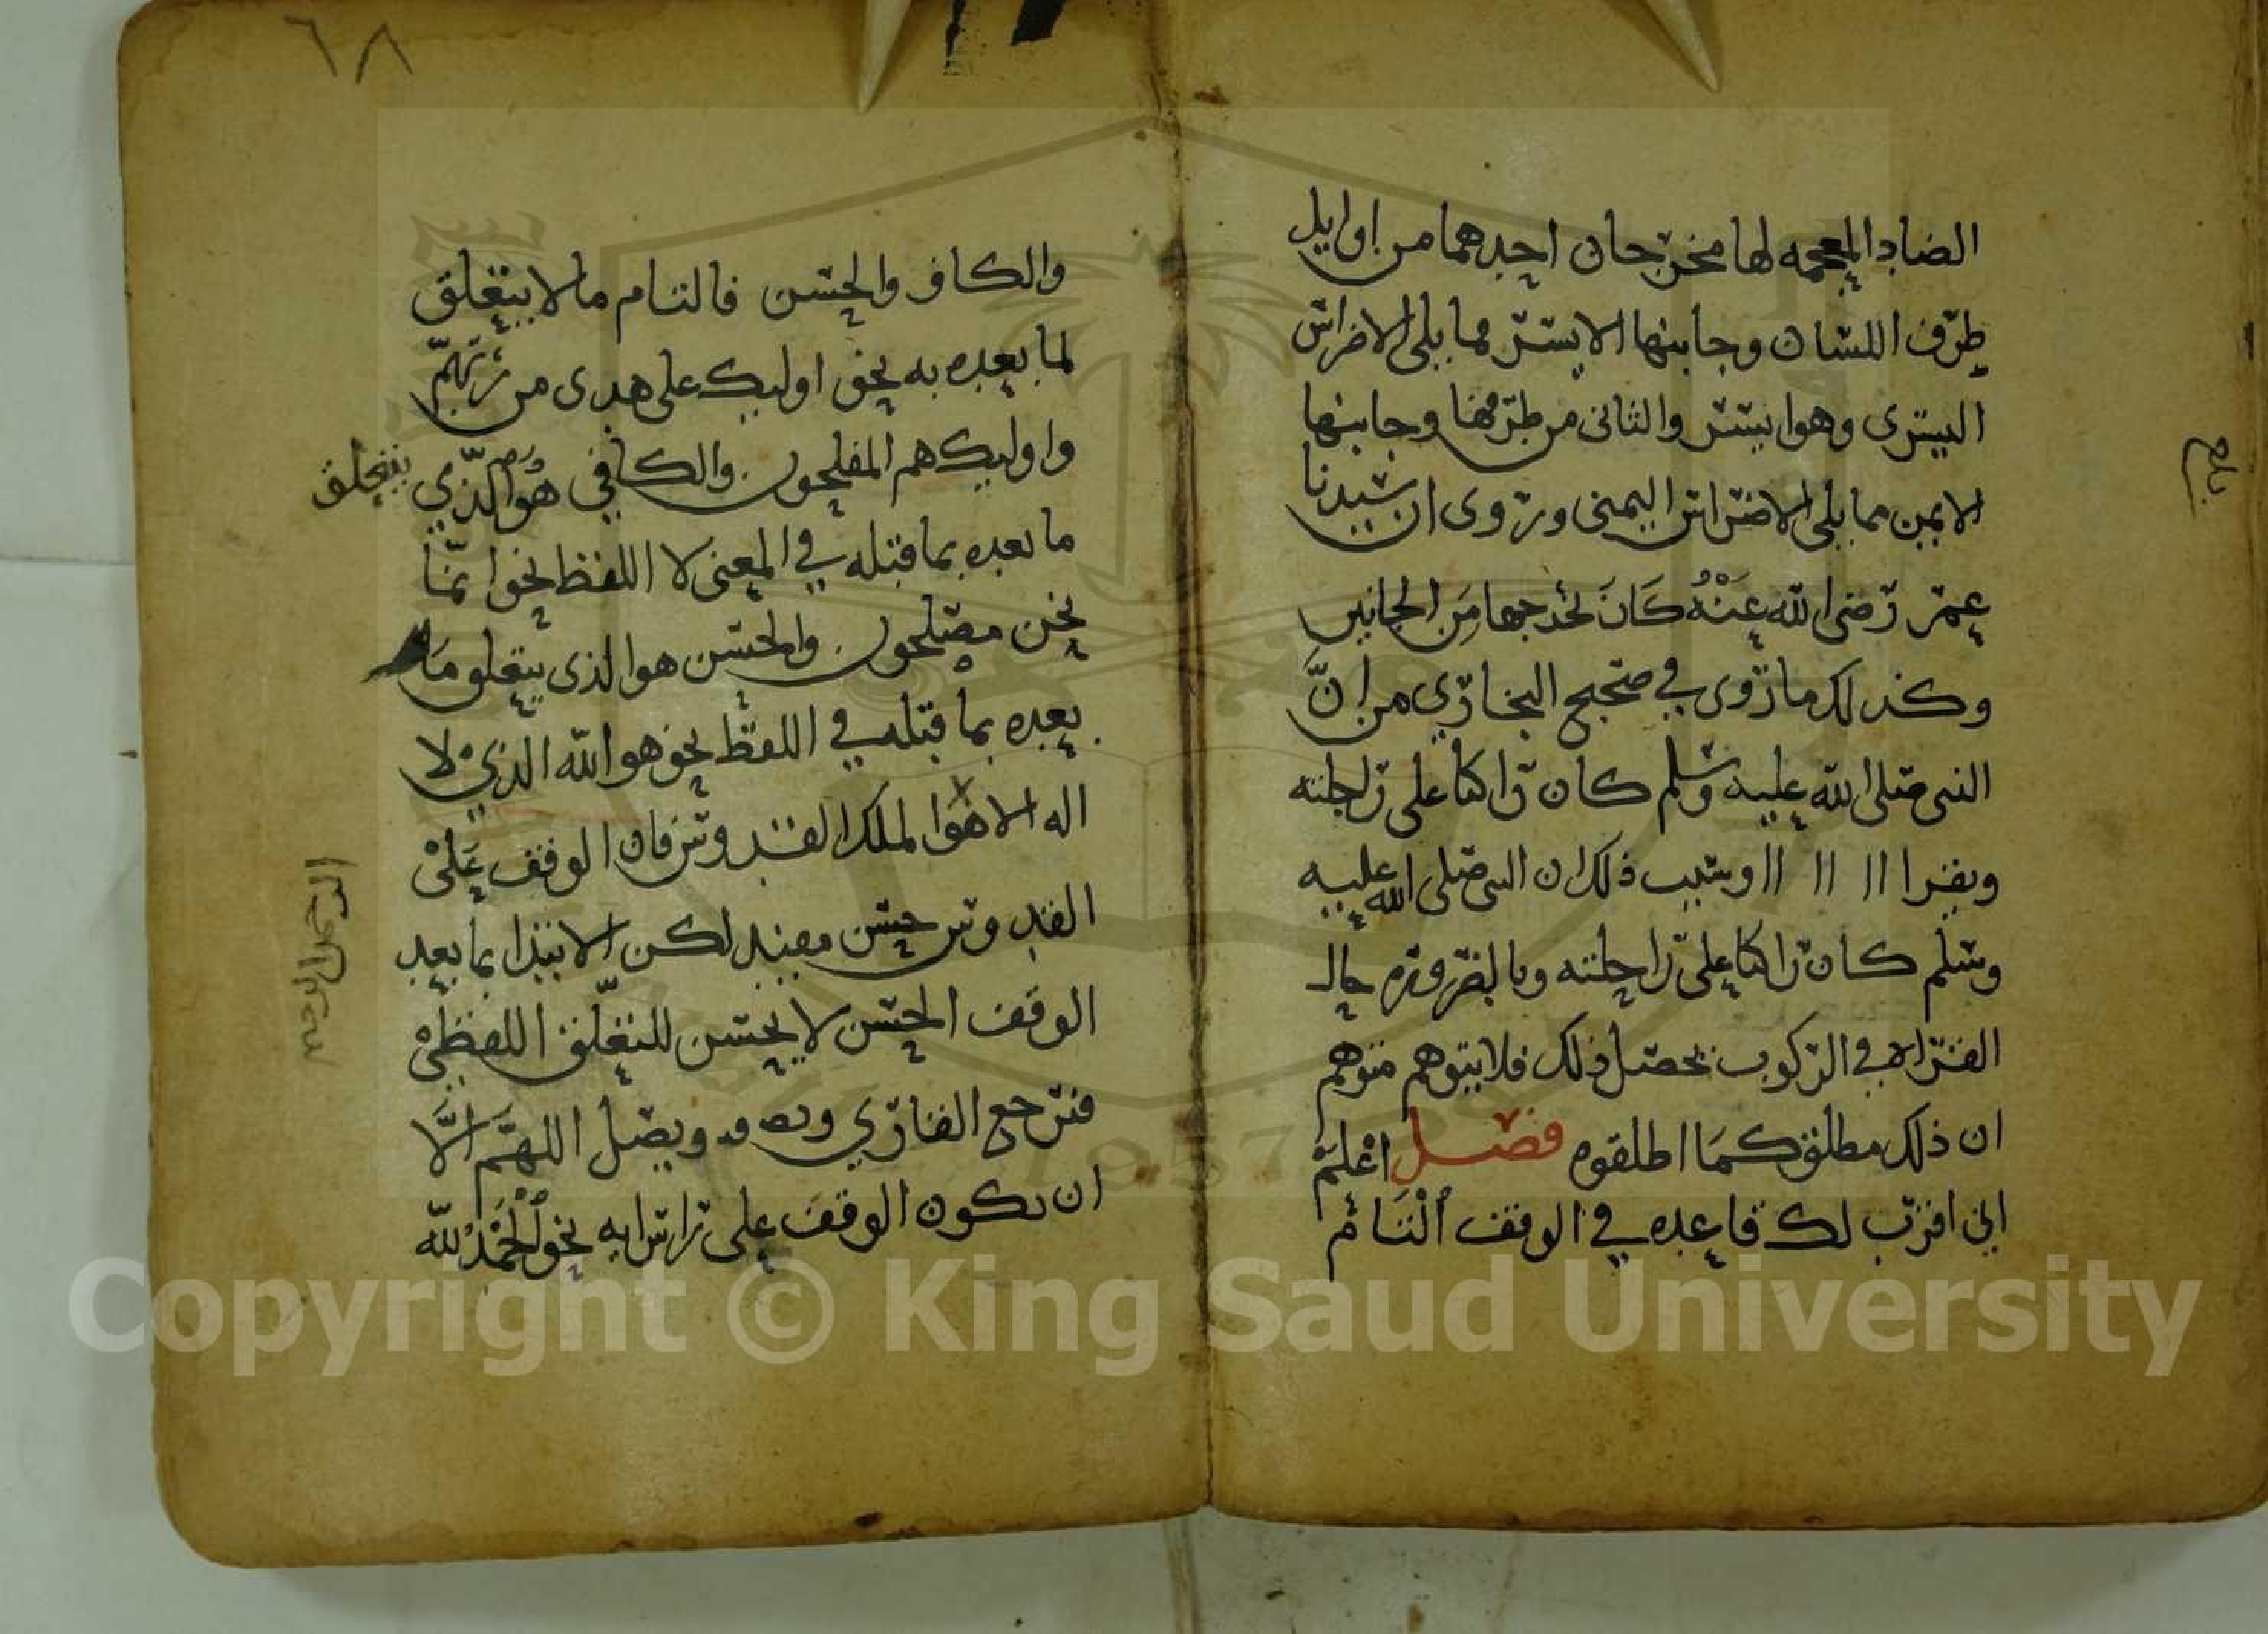 الضاد المعجمه لها مخرجان احدهما من اوايل
طرف اللسان وجانبها الايسر مما يلي الاضراس
اليسرى وهو ايسر والثاني من طرفها وجانبها
الايمن مما يلي الاضراس اليمنى وروى ان سيدنا
عمر رضى الله عنْهُ كَانَ يخرجها مِنَ الجانبين
وكذلك ما روى في صحيح البخاري من انَّ
النبى صلى الله عليه وسلم كان راكبا على راحلته
ويقرا اا اا اا وسبب ذلك ان النبى صلى الله عليه
وسلم كان راكبا على راحلته وبالضروره حال
القراه في الركوب يحصل ذلك فلا يتوهم متوهم
ان ذلك مطلق كمَا اطلقوه فصل اعْلمْ
اني اقرب لك قاعده في الوقف الْتَام
٦٨
والكاف والحسن فالتام ما لا يتعلق
لما بعده به نحو اوليك على هدى من ربّهمْ
واوليك هم المفلحون والكافي هُوَ الّذي يتعلق
ما بعده بما قبله في المعنى لا اللفظ نحو انمّا
نحن مصلحون والحسن هو الذى يتعلق مَا
بعده بما قبله في اللفظ نحو هو الله الذي لا
اله الا هو الملك القدوس فان الوقف عَلىْ
القدوس حسن مفيد لكن الابتدا بما بعد
الوقف الحسن لا يحسن للتعلّق اللفظى
فترجع القاري ويصل اللهمَّ الَّا
ان يكون الوقف على راس ايه نحو الْحَمْدُ لله
الرحمن الرحيم